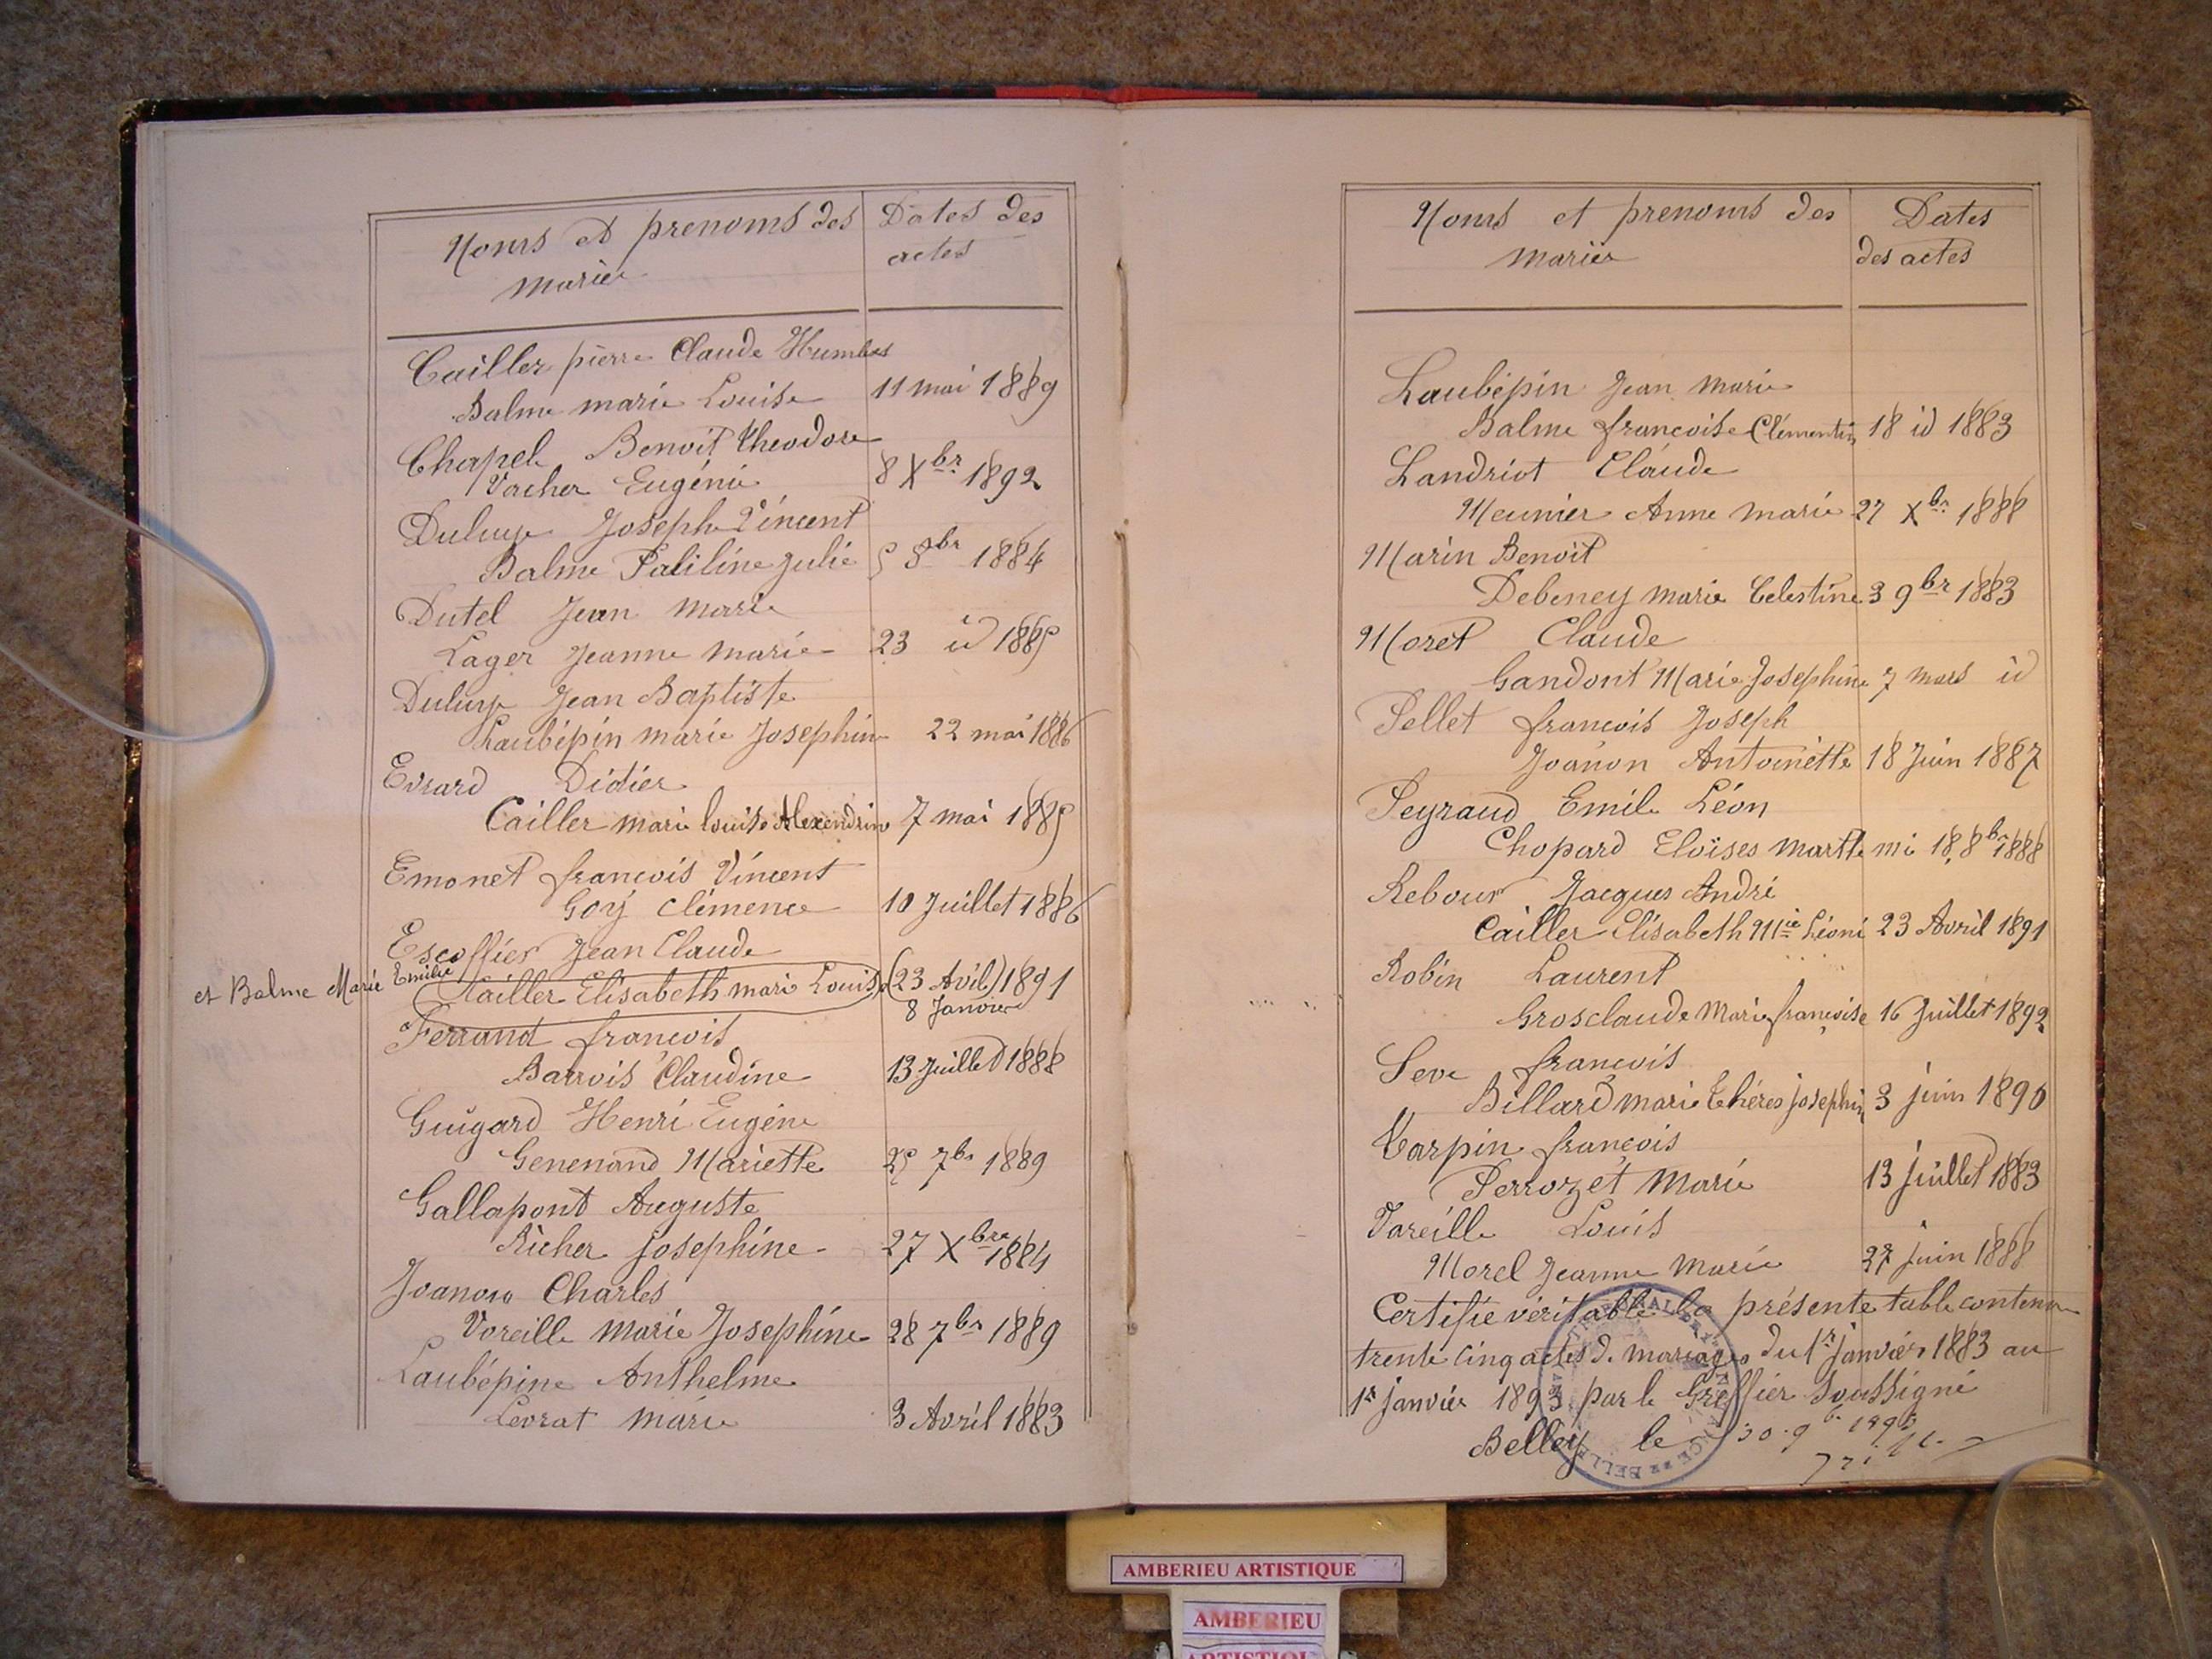 Noms et prenoms des Dates des
mariés actes
Cailler pierre Claude Humbert
Balme marie Louise 11 mai 1889
Chapel Benoit Theodore
Vacher Eugénie 8 Xbr 1892
Duluye Joseph Vincent
Balme Pauline Julie 5 8br 1884
Dutel Jean Marie
Lager Jeanne marie 23 id 1885
Duluye Jean Baptiste
Laubépin marie Josephine 22 mai 1886
Evrard Didier
Cailler marie louise Alexendrine 7 mai 1885
Emonet françois Vincent
Goÿ Clémence 10 Juillet 1886
Escoffier Jean Claude
et Balme Marie Emilie
Cailler Elisabeth marie Louise (23 Avil) 1891
8 Janvier
Ferrand françois
Barrois Claudine 13 Juillet 1888
Guigard Henri Eugène
Genenand Mariette 25 7br 1889
Gallapont Auguste
Richer Josephine 27 Xbre 1884
Joanon Charles
Voreille Marie Josephine 28 7br 1889
Laubépine Anthelme
Levrat marie 3 Avril 1883
Noms et prenoms des Dates
mariés des actes
Laubépin Jean Marie
Balme françoise Clémentin 18 id 1883
Landriot Claude
Meunier Anne marie 27 Xbr 1888
Marin Benoit
Debeney marie Celestine 3 9br 1883
Moret Claude
Gandont Marie Josephine 7 mars id
Pellet françois Joseph
Joanon Antoinette 18 Juin 1887
Peyraud Emile Léon
Chopard Eloïses marthe mi 18 8br 1888
Rebour Jacques André
Cailler Elisabeth Mie Léonie 23 Avril 1891
Robin Laurent
Grosclaude Marie françoise 16 Juillet 1892
Seve françois
Billard marie Théres josephin 3 juin 1890
Tarpin françois
Perrozet Marie 13 juillet 1883
Vareille Louis
Morel Jeanne Marie 27 juin 1888
Certifie véritable la présente table contenu
trente cinq actes de mariages du 1r janvier 1883 au
1r janvier 1893 par le Greffier Soussigné
Belley le 30 9b 1893
AMBERIEU ARTISTIQUE
AMBERIEU
ARTISTIQUE